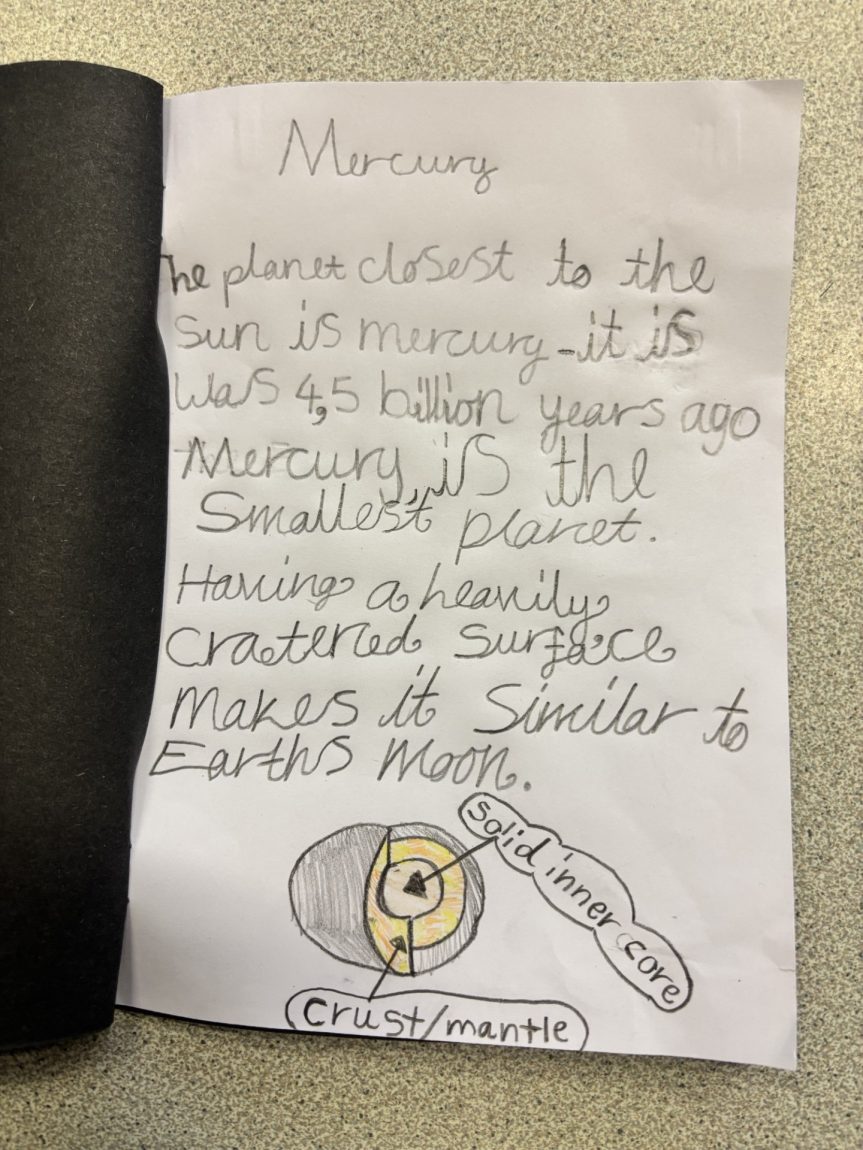 Mercury
The planet closest to the
sun is mercury - it is
was 4,5 billion years ago
Mercury is the
smallest planet.
Having a heavily
cratered surface
makes it similar to
Earths Moon.
solid inner core
crust/mantle